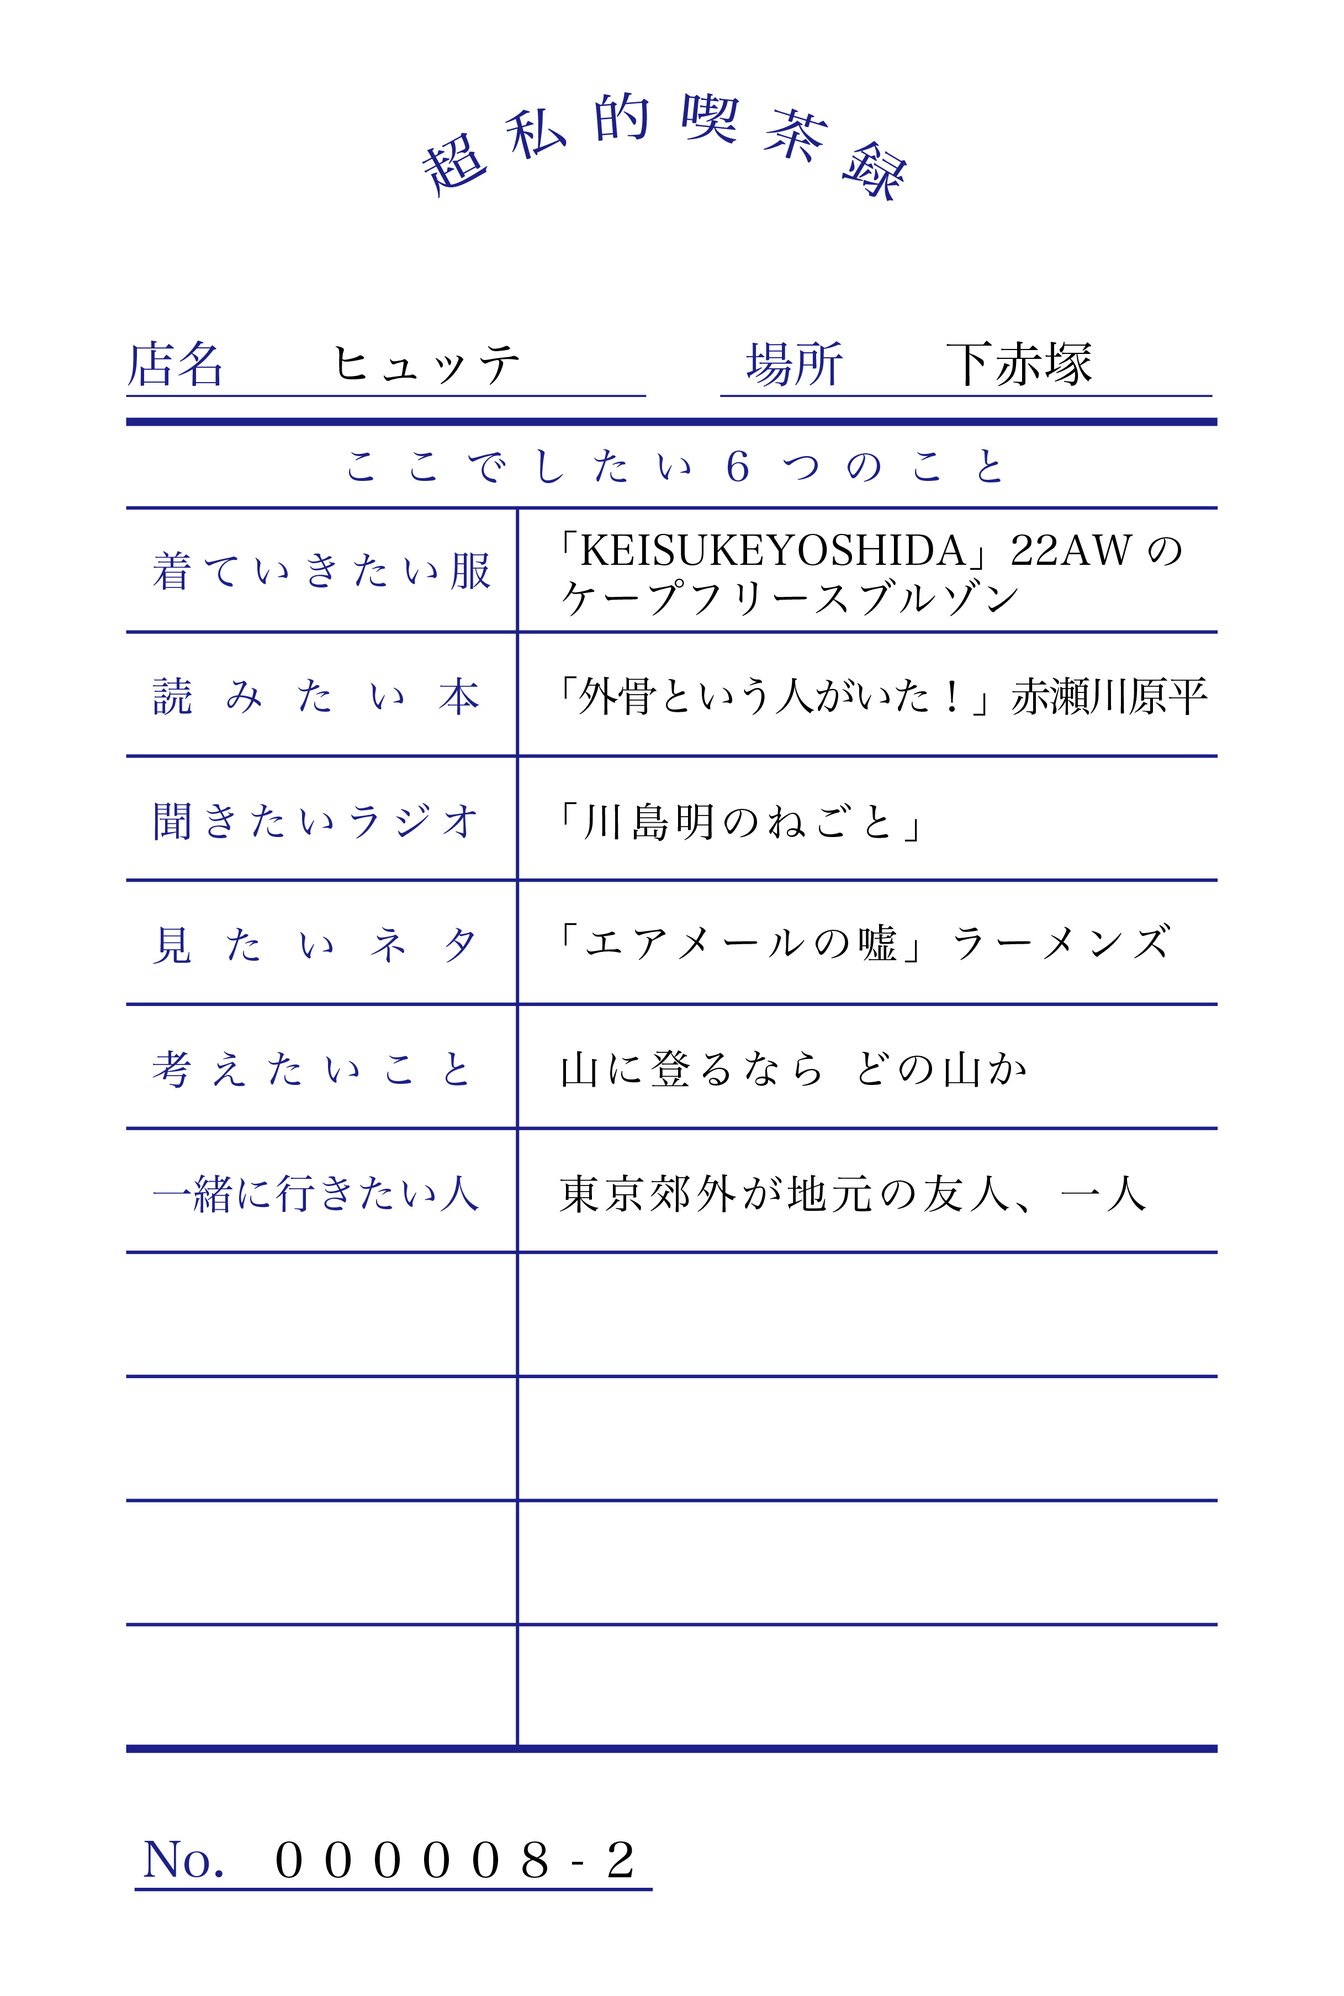 超私的喫茶録
店名 ヒュッテ 場所 下赤塚
ここでしたい6つのこと
着ていきたい服 「KEISUKEYOSHIDA」22AW の
ケープフリースブルゾン
読みたい本 「外骨という人がいた！」赤瀬川原平
聞きたいラジオ 「川島明のねごと」
見たいネタ 「エアメールの嘘」ラーメンズ
考えたいこと 山に登るなら どの山か
一緒に行きたい人 東京郊外が地元の友人、一人
No. 000008-2